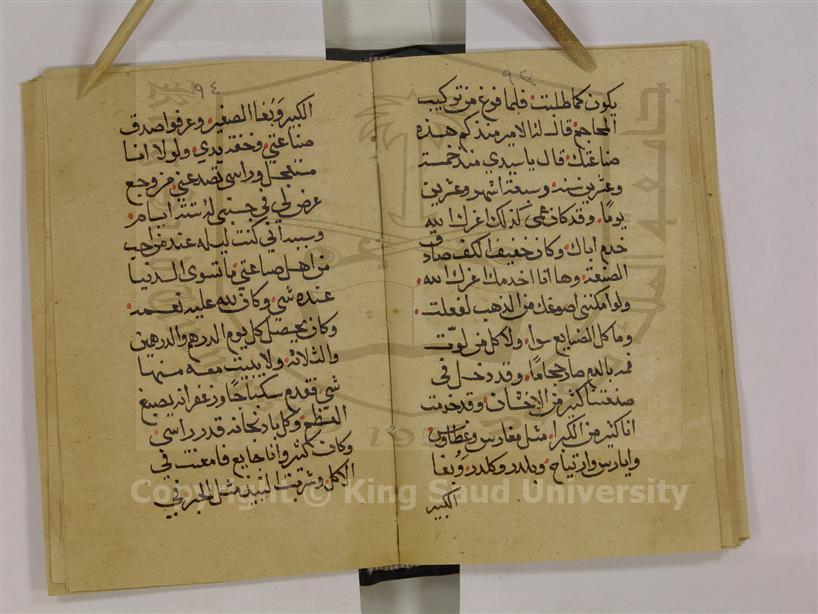 ٩٣
يكون كما طلبت فلما فرغ من تركيب
المحاجم قال له الامير منذ كم هذه
صناعتك قال يا سيدي منذ خمسة
وعشرين سنه وسبعة اشهر وعشرين
يوما وقد كان عمى كذلك اعزك الله
خدم اباك وكان خفيف الكف صادق
الصنعة وها انا اخدمك اعزك الله
ولو امكننى اصوغك من الذهب لفعلت
وما كل الصنايع سوا ولا كل من لوّت
فمه بالدم صار حجاما وقد دخل فى
صنعتنا كثير من الاخشان وقد خدمت
انا كثير من الكبرا مثل
وارتياح وبلدر وكلدر وبغا
الكبير
٩٤
الكبير وبغا الصغير وعرفوا صدق
صناعتي وخفة يدي ولولا انا
مستعجل وراسى تصدعني من وجع
عرض لي في جنبي له ستة ايام
وسببه اني كنت ليله عند صاحب
من اهل صناعتي ما تسوى الدنيا
عنده شي وكان لله عليه نعمه
وكان يحصل كل يوم الدرهم والدرهمين
والثلاثه ولا يبيت معه منها
شي فقدم سكباجا وزعفرانه يصبغ
القطم وكل باذنجانه قدر راسى
وكان كثير وانا جايع فامعنت في
الاكل وشربت النبيذ مثل الحبر في
Copyright © King Saud University